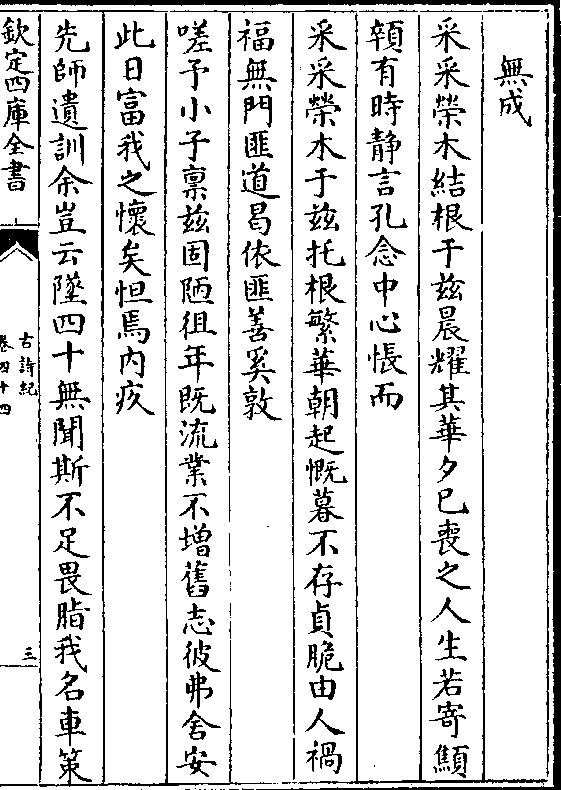 無成
采采榮木結根于兹晨耀其華夕已喪之人生若寄顦
顇有時静言孔念中心悵而
采采榮木于兹托根繁華朝起慨暮不存貞脆由人禍
福無門匪道曷依匪善奚敦
嗟予小子禀兹固陋徂年既流業不增舊志彼弗舍安
此日富我之懷矣怛焉内疚
先師遺訓余豈云墜四十無聞斯不足畏脂我名車策
欽定四庫全書
古詩紀
卷四十四
三